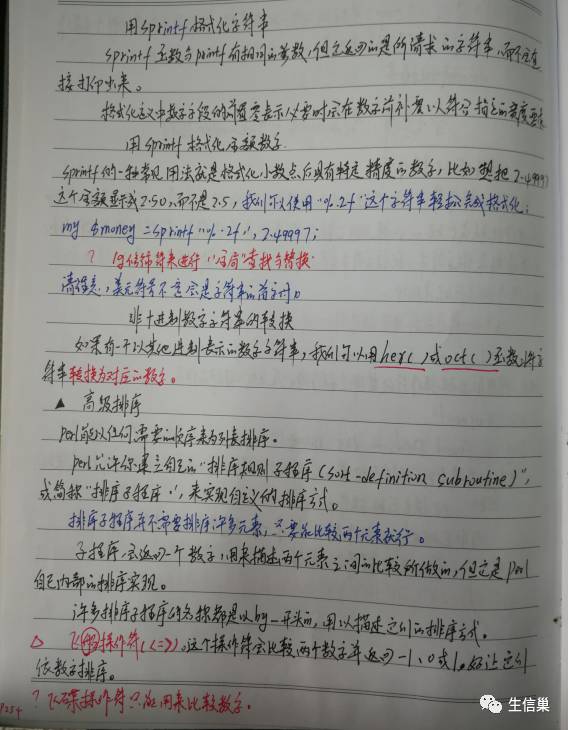 用sprintf格式化字符串
sprintf函数与printf有相同的参数,但它返回的是所请求的字符串,而不会直
接打印出来。
格式化定义中数字字段的前置零表示必要时会在数字前补零以符合指定的宽度要求
用sprintf格式化金额数字.
sprintf的一种常见用法就是格式化小数点后具有特定精度的数字,比如想把2.49997
这个金额显示成2.50,而不是2.5,我们可以使用"%.2f"这个字符串轻松完成格式化:
my $money = sprintf "%.2f", 2.49997;
? 1g修饰符来进行"全局"查找与替换.
请留意,美元符号不会是字符串的首字符
非十进制数字字符串的转换
如果有一个以其他进制表示的数字字符串,我们可以用hex()或oct()函数将字
符串转换为对应的数字。
▲ 高级排序
perl能以任何需要的顺序来为列表排序。
perl允许你建立自己的"排序规则子程序(sort-definition subroutine)",
或简称"排序子程序",来实现自定义的排序方式。
排序子程序并不需要排序许多元素,只要能比较两个元素就行。
子程序会返回一个数字,用来描述两个元素之间的比较所做的,但这是perl
自己内部的排序实现。
许多排序子程序的名称都是以by_开头的,用以描述它们的排序方式。
△ 飞碟操作符(<=>)。这个操作符会比较两个数字并返回-1、0或1。好让它们
依数字排序。
? 飞碟操作符只能用来比较数字.
P254
生信巢